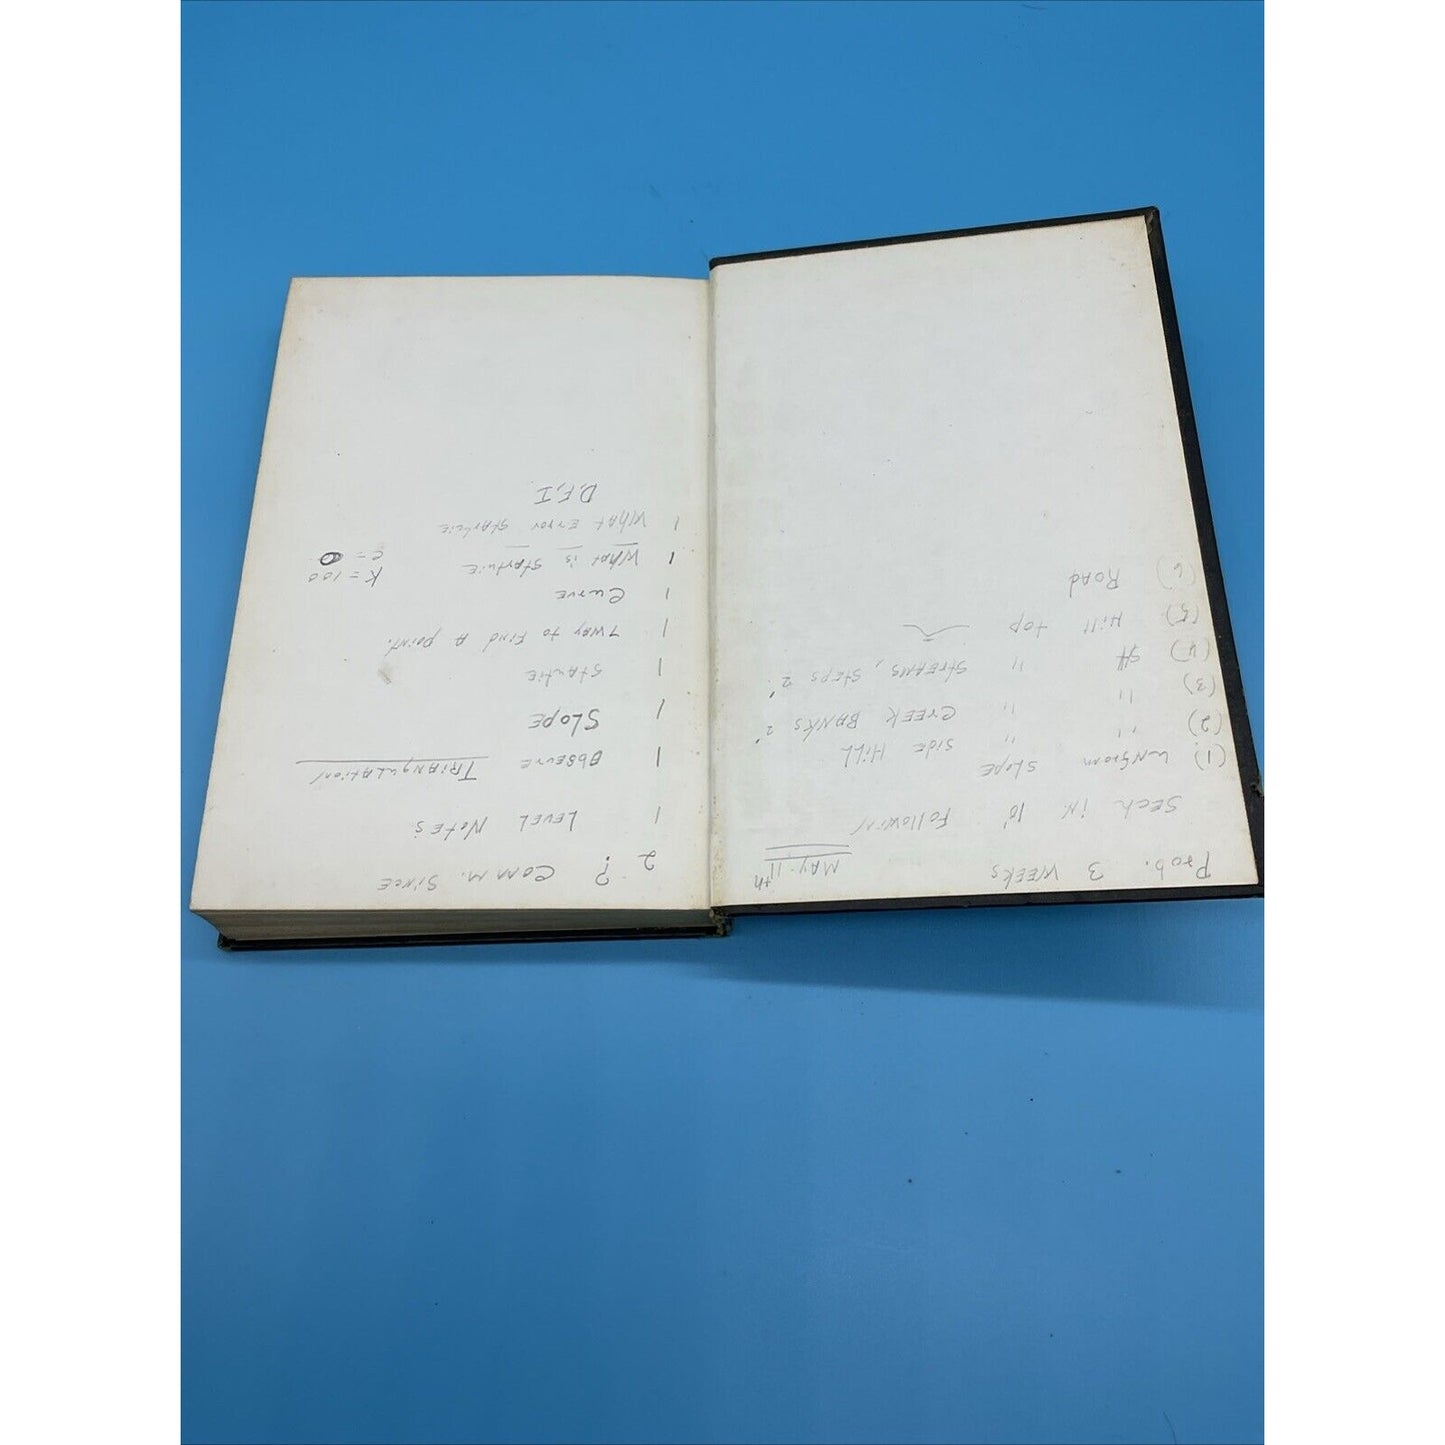 Prob. 3 WEEKS MAY-11th
SECh IN 10' Following
(1) UNIFrom SlOPE SIDE HILL
(2) " " CREEK BANKS 2'
(3) " " STREAMS, STEPS 2'
(4)
(5) Hill top
(6) ROAD
2 ? COMM. SINCE
1 LEVEL NOTES
1 OBSERVE TRIANGULATION
1 SLOPE
1 STADIE
1 7 WAY to FIND A POINT.
1 CURVE
1 WHAT is STADIE K = 100
C = 0
1 WHAT ERROR STADIE
D.F.I